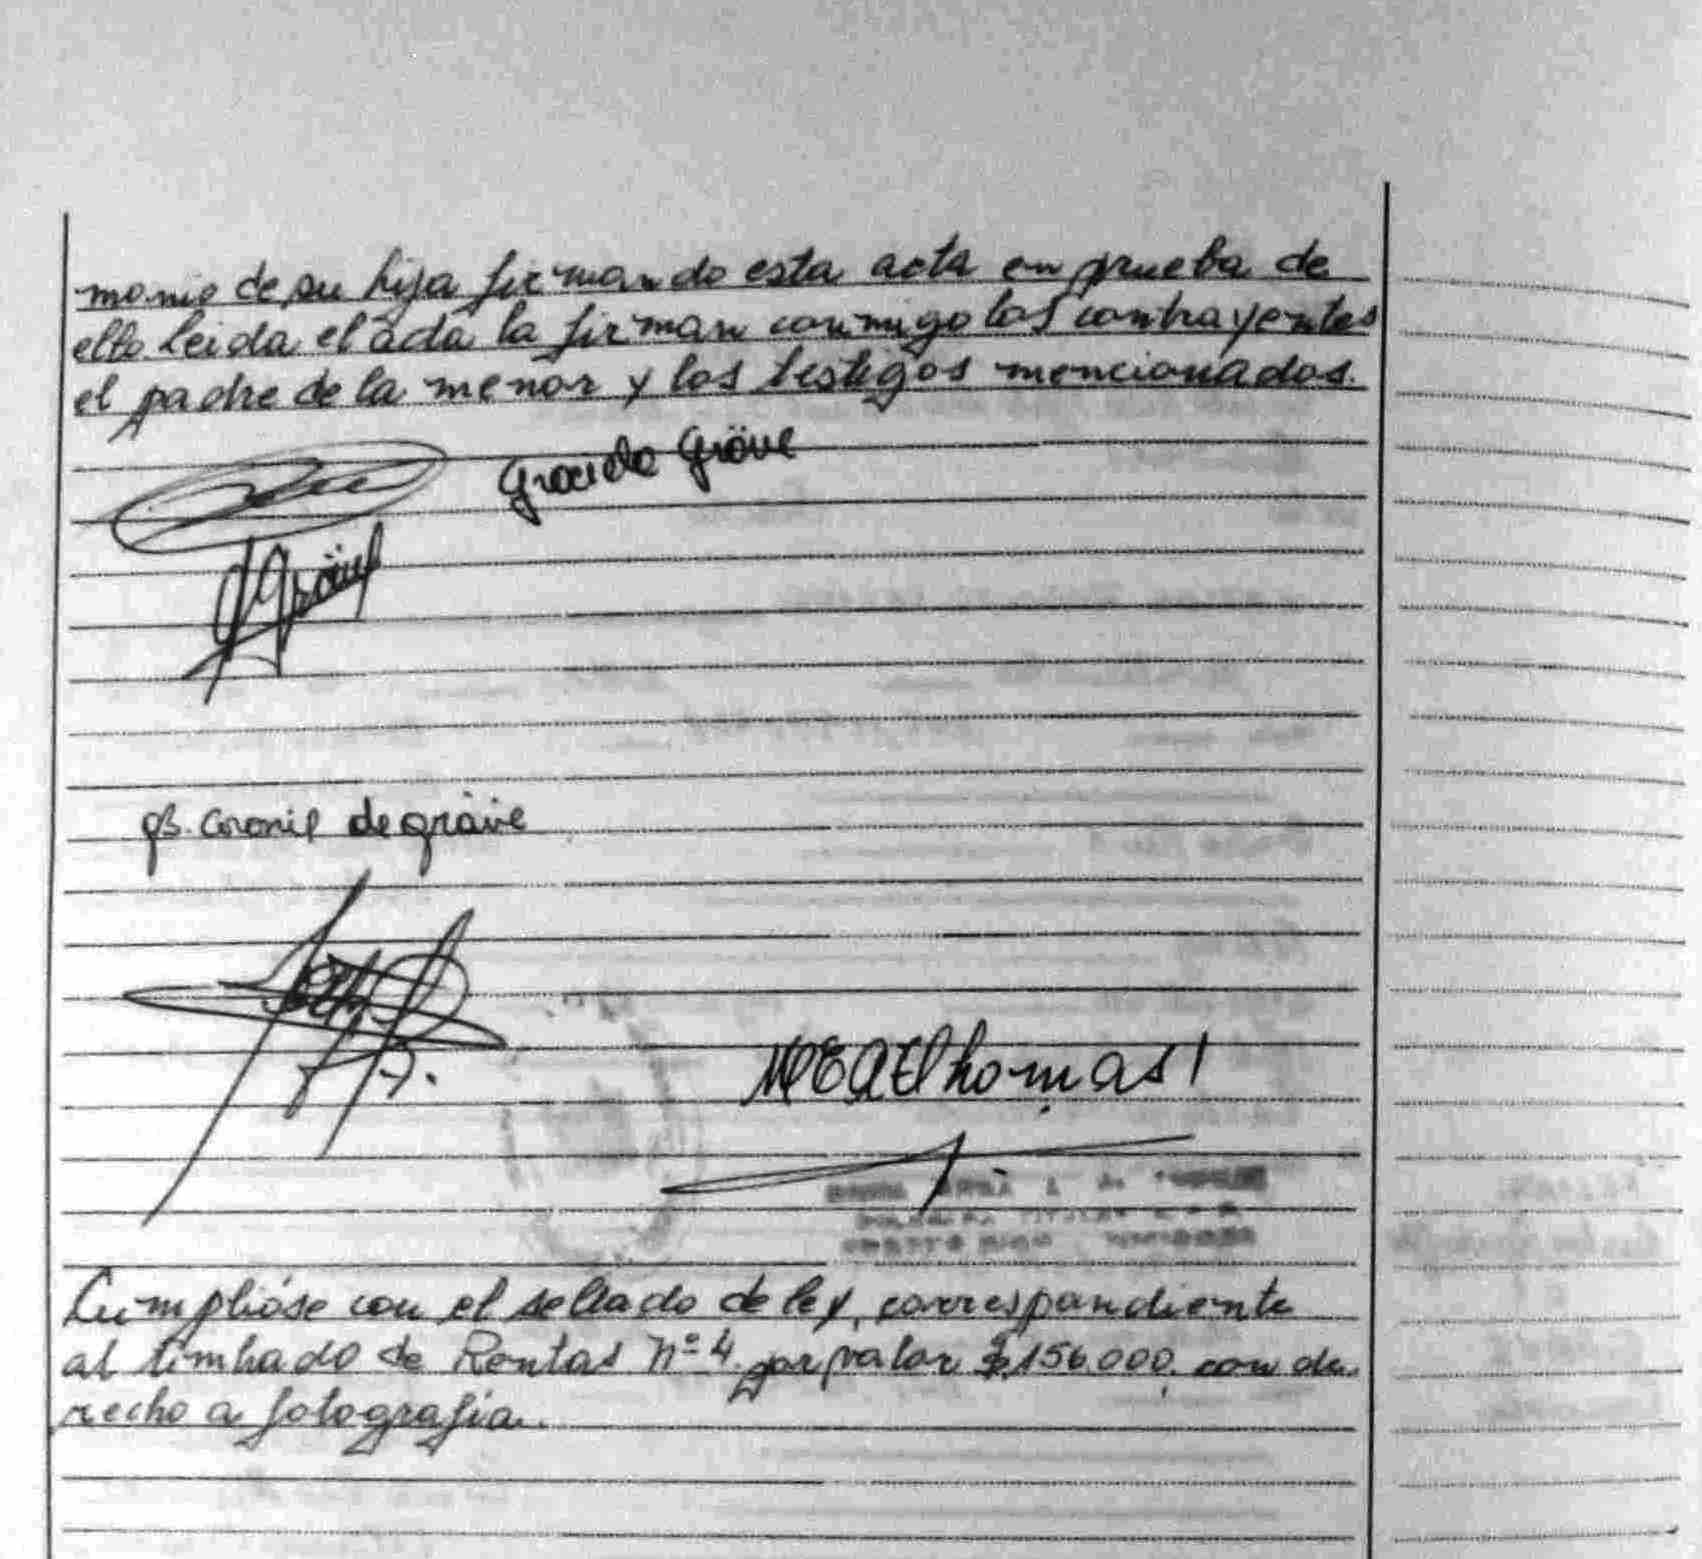 monio de su hija firmando esta acta en prueba de
ello leida el acta la firman conmigo los contrayentes
el padre de la menor y los testigos mencionados.
Graciela Gräve
Gräve
B. Coronel de gräve
Thomas
Cumplióse con el sellado de ley, correspondiente
al timbado de Rentas Nº 4. por valor $156.000, con de
recho a fotografia.